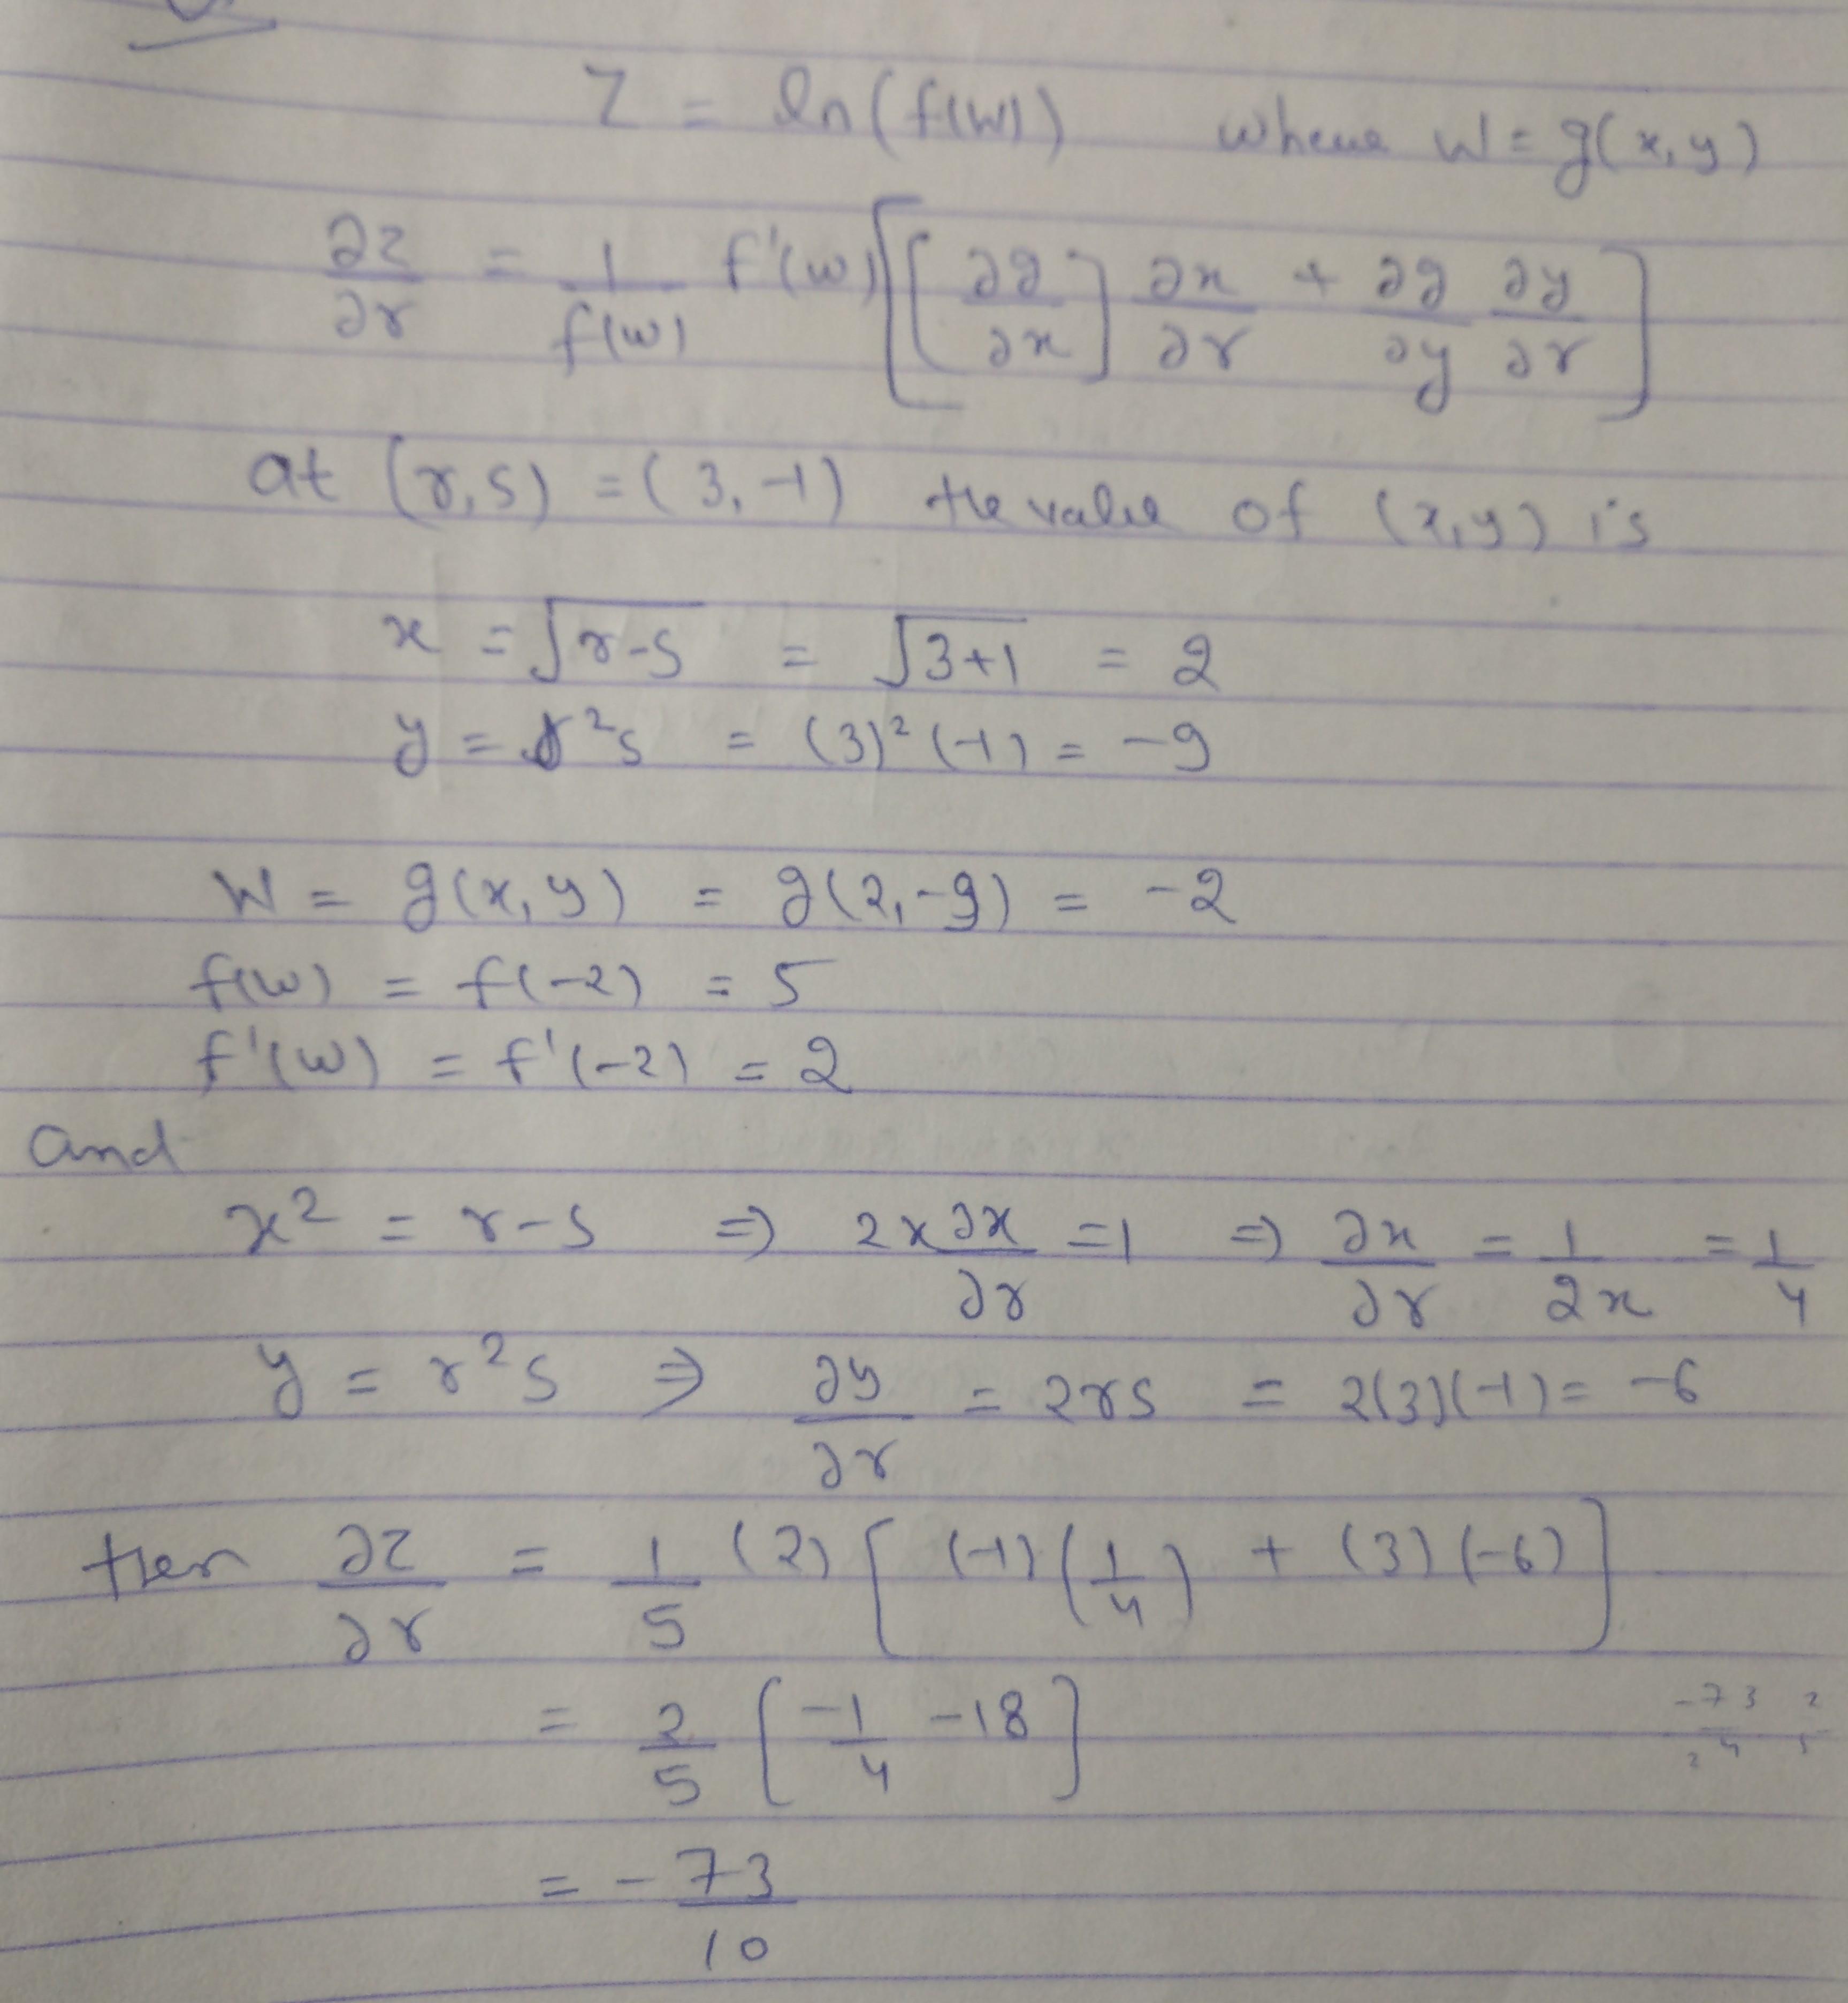 Z = ln(f(w)) where w = g(x,y)
∂z/∂r = 1/f(w) f'(w) [[∂g/∂x] ∂x/∂r + ∂g/∂y ∂y/∂r]
at (r,s) = (3,-1) the value of (x,y) is
x = √r-s = √3+1 = 2
y = r²s = (3)²(-1) = -9
W = g(x,y) = g(2,-9) = -2
f(w) = f(-2) = 5
f'(w) = f'(-2) = 2
and
x² = r-s ⇒ 2x ∂x/∂r = 1 ⇒ ∂x/∂r = 1/2x = 1/4
y = r²s ⇒ ∂y/∂r = 2rs = 2(3)(-1) = -6
then ∂z/∂r = 1/5 (2) [(-1)(1/4) + (3)(-6)]
= 2/5 [-1/4 -18]
-73/4 2/5
2
= -73/10